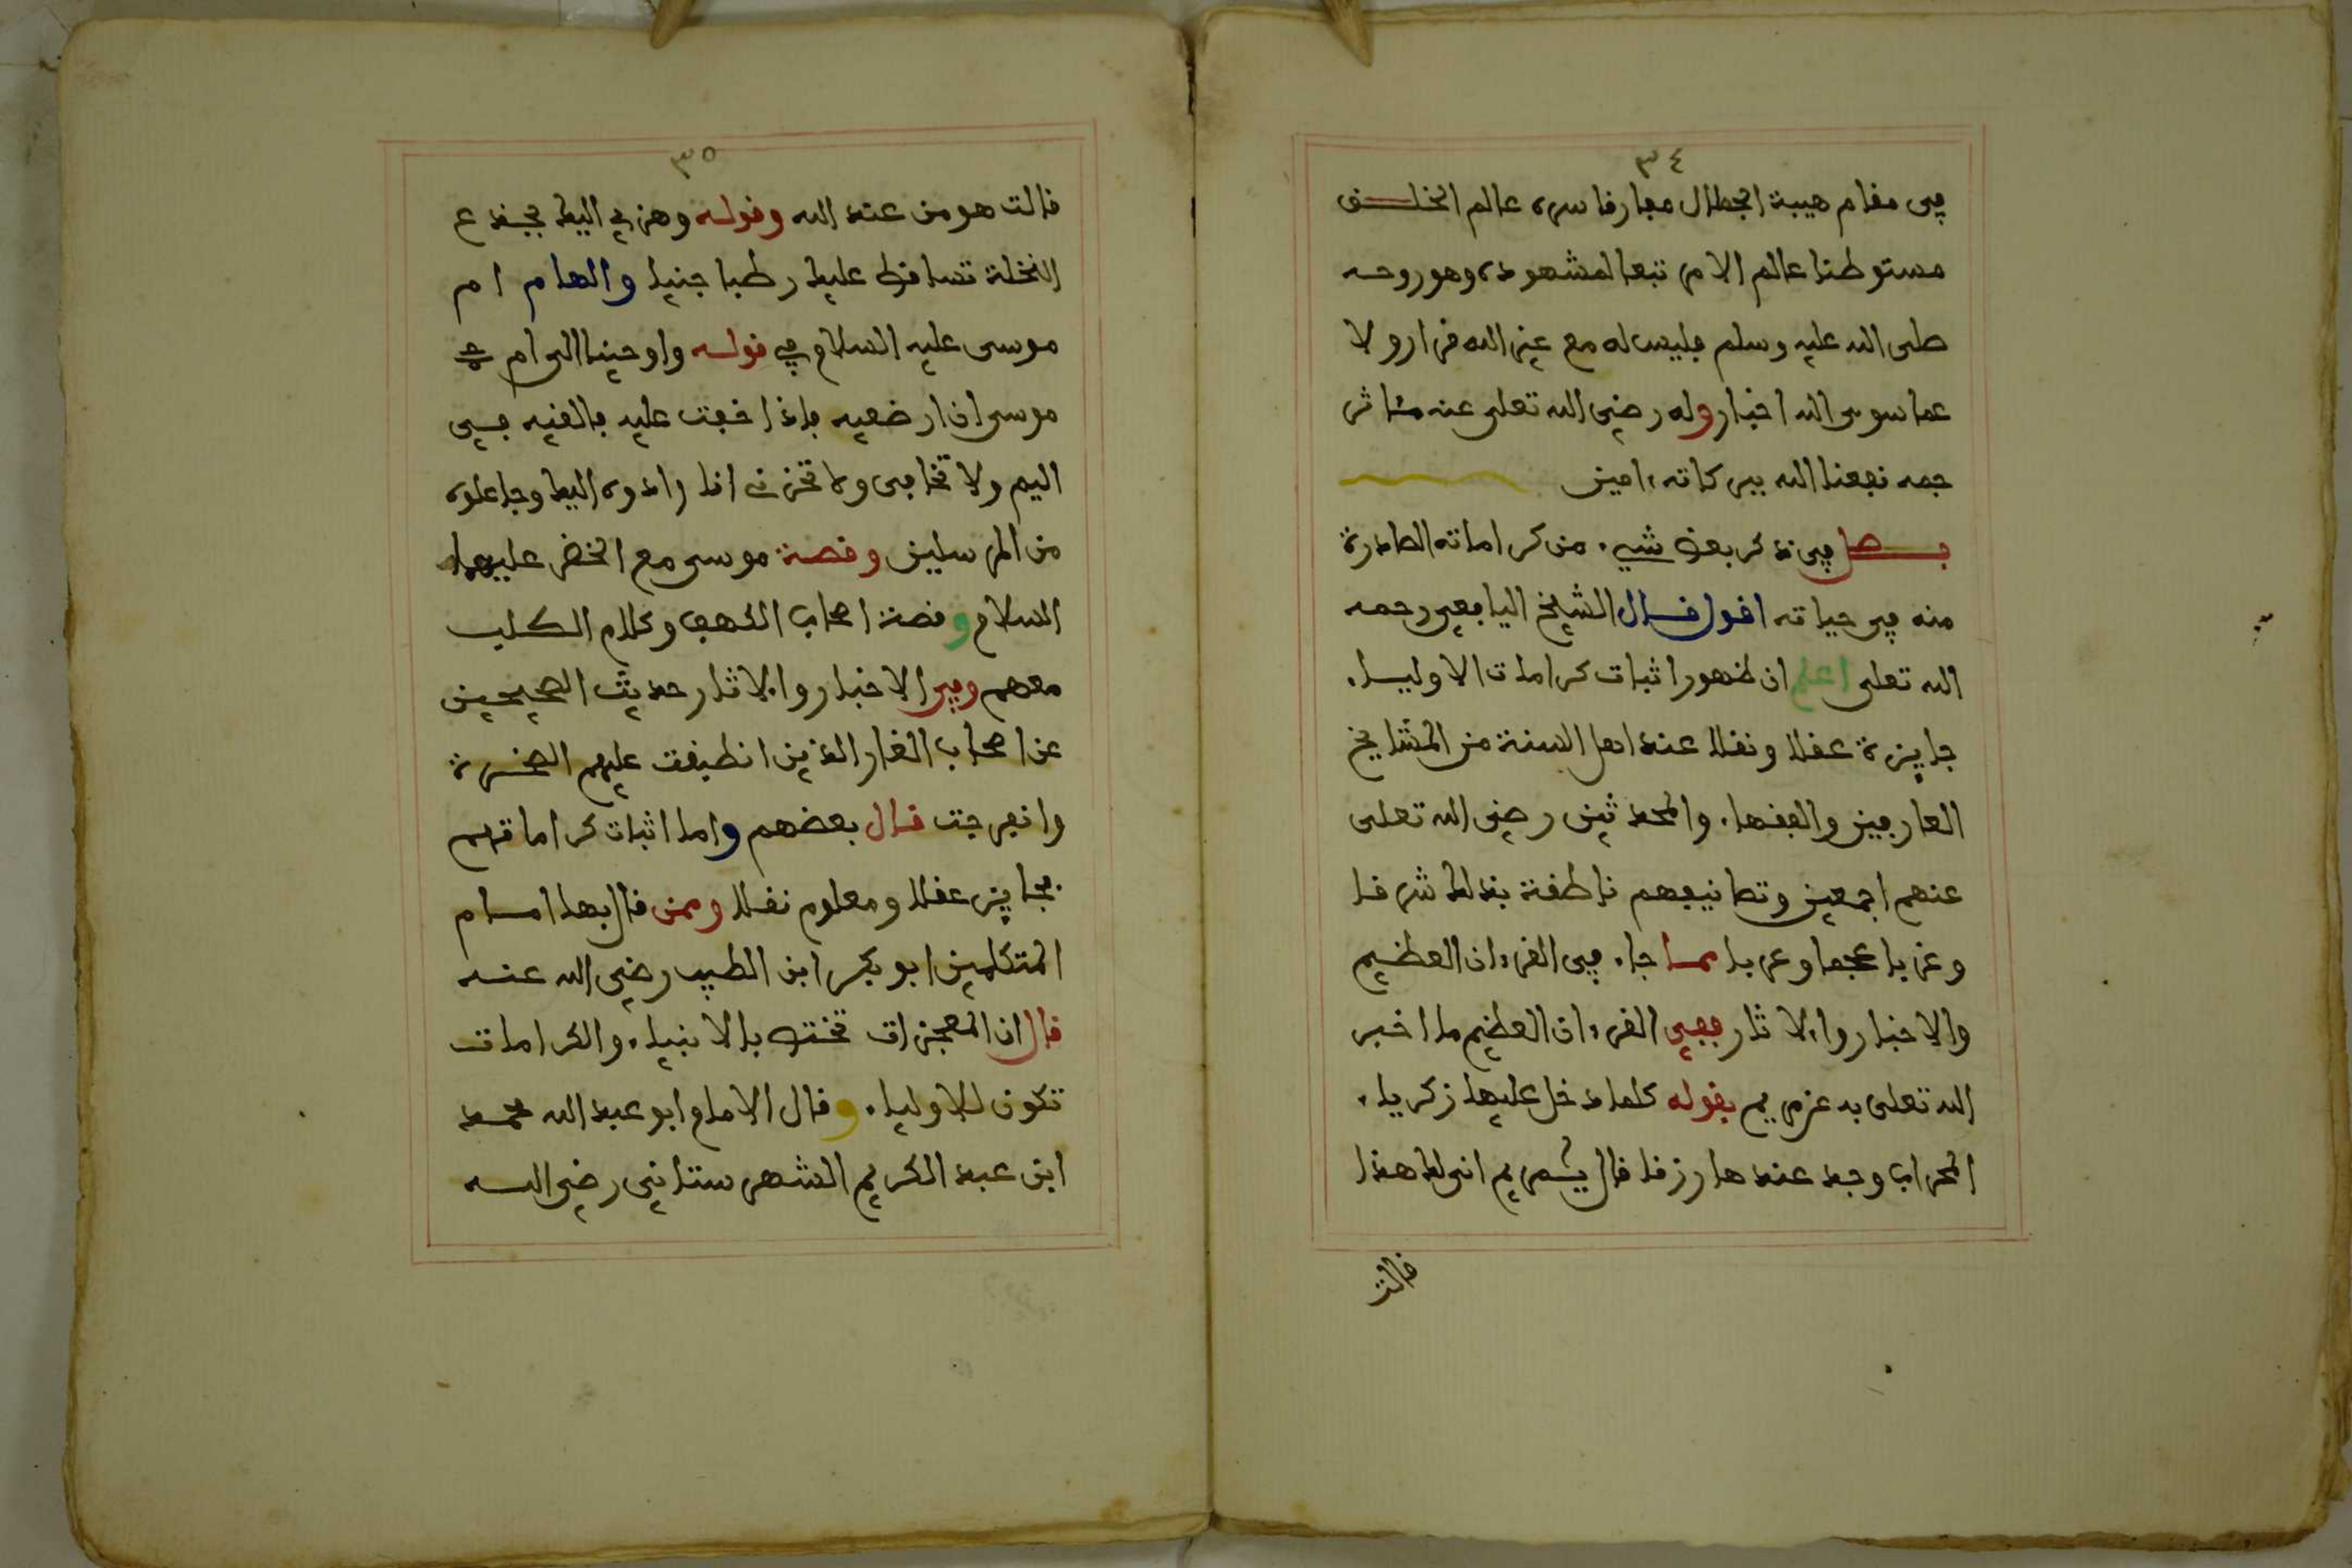 ٣٤
في مقام هيبة الجلال مفارقا سره عالم الخلق
مستوطنا عالم الامر تبعا لمشهوده وهو روحه
صلى الله عليه وسلم فليس له مع غير الله قرار ولا
عما سوى الله اخبار وله رضي الله تعلى عنه مئاثر
جمه نفعنا الله ببركاته ءامين
فصل في ذكر بعض شيء من كراماته الصادرة
منه في حياته اقول قال الشيخ اليافعي رحمه
الله تعلى اعلم ان ظهور اثبات كرامات الاولياء
جايزة عقلا ونقلا عند اهل السنة من المشايخ
العارفين والفقهاء والمحدثين رضي الله تعلى
عنهم اجمعين وتصانيفهم ناطقة بذلك شرقا
وغربا عجما وعربا مما جاء في القرءان العظيم
والاخبار والاثار ففي القرءان العظيم ما اخبر
الله تعلى به عن مريم بقوله كلما دخل عليها زكرياء
المحراب وجد عندها رزقا قال يمريم انى لك هذا
قالت
٣٥
قالت هو من عند الله وقوله وهزي اليك بجذع
النخلة تساقط عليك رطبا جنيا والهام ام
موسى عليه السلام في قوله واوحينا الى ام
موسى ان ارضعيه فاذا خفت عليه فالقيه في
اليم ولا تخافي ولا تحزني انا رادوه اليك وجاعلوه
من المرسلين وقصة موسى مع الخضر عليهما
السلام وقصة اصحاب الكهف وكلام الكلب
معهم وفي الاخبار والاثار حديث الصحيحين
عن اصحاب الغار الذين انطبقت عليهم الصخرة
وانفرجت قال بعضهم واما اثبات كراماتهم
فجايز عقلا ومعلوم نقلا وممن قال بها امام
المتكلمين ابو بكر ابن الطيب رضي الله عنه
قال ان المعجزات تختص بالانبياء والكرامات
تكون للاولياء وقال الامام ابو عبد الله محمد
ابن عبد الكريم الشهرستاني رضي الله